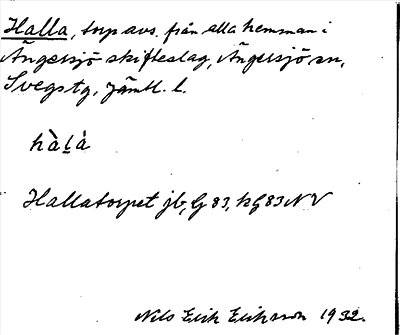 Halla, torp avs. från alla hemman i
Ängersjö skifteslag, Ängersjö sn,
Svegs tg, Jämtl. l.
hàlá
Hallatorpet jb, G 83, kG 83 NV
Nils Erik Eriksson 1932.